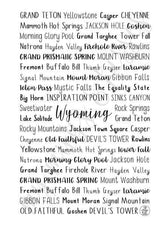 GRAND TETON Yellowstone Casper CHEYENNE
Mammoth Hot Springs JACKSON HOLE Goshen
Morning Glory Pool Grand Targhee Tower Fall
Natrona Hayden Valley Firehole River Rawlins
GRAND PRISMATIC SPRING MOUNT WASHBURN
Fremont Buffalo Bill Thumb Geyser Laramie
Signal Mountain Mount Moran Gibbon Falls
Mystic Falls The Equality State
Big Horn INSPIRATION POINT SINKS CANYON
Sweetwater
Rock Springs
Lake Solitude
Wyoming
Grand Teton
Rocky Mountains Jackson Town Square Casper
Cheyenne Old Faithful DEVIL'S TOWER
Yellowstone Mammoth Hot Springs Tower Fall
Natrona Morning Glory Pool Jackson Hole
Grand Targhee Firehole River Hayden Valley
GRAND PRISMATIC SPRING Mount Washburn
Fremont Buffalo Bill Thumb Geyser Laramie
GIBBON FALLS Mount Moran Signal Mountain
OLD FAITHFUL Goshen DEVIL'S TOWER